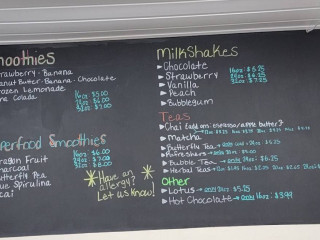 moothies
rawberry - Banana
anut Butter - Banana - Chocolate
rozen Lemonade
na Colada
16oz $5.00
24oz $6.00
32oz $7.00
perfood Smoothies
ragon Fruit
acai
utterfly Pea
ue Spirulina
cai
16oz $6.00
24oz $7.00
32oz $8.00
Have an
allergy?
Let us know!
MilkShakes
Chocolate
Strawberry
Vanilla
Peach
Bubblegum
16oz - $5.25
24oz - $6.25
32oz - $7.25
Teas
Chai (add on: espresso/apple butter)
Matcha
Butterfly Tea
Refreshers
Bubble Tea → only 24oz - $6.25
Herbal Teas
Other
Lotus → only 24oz $5.25
Hot Chocolate → only 16oz: $3.99